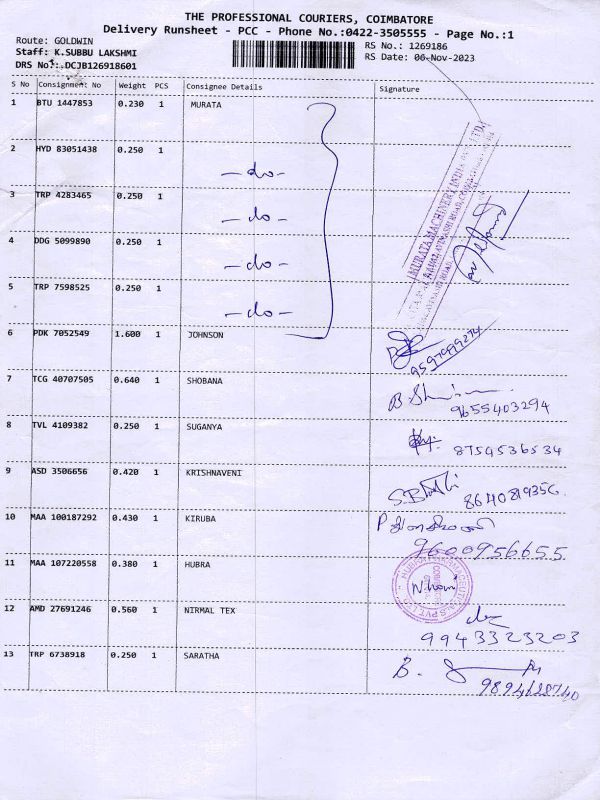 THE PROFESSIONAL COURIERS, COIMBATORE
Delivery Runsheet - PCC - Phone No.:0422-3505555 - Page No.:1
Route: GOLDWIN
RS No.: 1269186
Staff: K.SUBBU LAKSHMI
RS Date: 06-Nov-2023
DRS No.:.DCJB126918601
S No Consignment No Weight PCS Consignee Details Signature
1 BTU 1447853 0.230 1 MURATA
2 HYD 83051438 0.250 1 -do-
3 TRP 4283465 0.250 1 -do-
4 DDG 5099890 0.250 1 -do-
5 TRP 7598525 0.250 1 -do-
MURATA MACHINERY INDIA
6 PDK 7052549 1.600 1 JOHNSON
7 TCG 40707505 0.640 1 SHOBANA 9655403294
8 TVL 4109382 0.250 1 SUGANYA 8754536534
9 ASD 3506656 0.420 1 KRISHNAVENI
10 MAA 100187292 0.430 1 KIRUBA 9600956655
11 MAA 107220558 0.380 1 HUBRA
12 AMD 27691246 0.560 1 NIRMAL TEX 9943323203
13 TRP 6738918 0.250 1 SARATHA